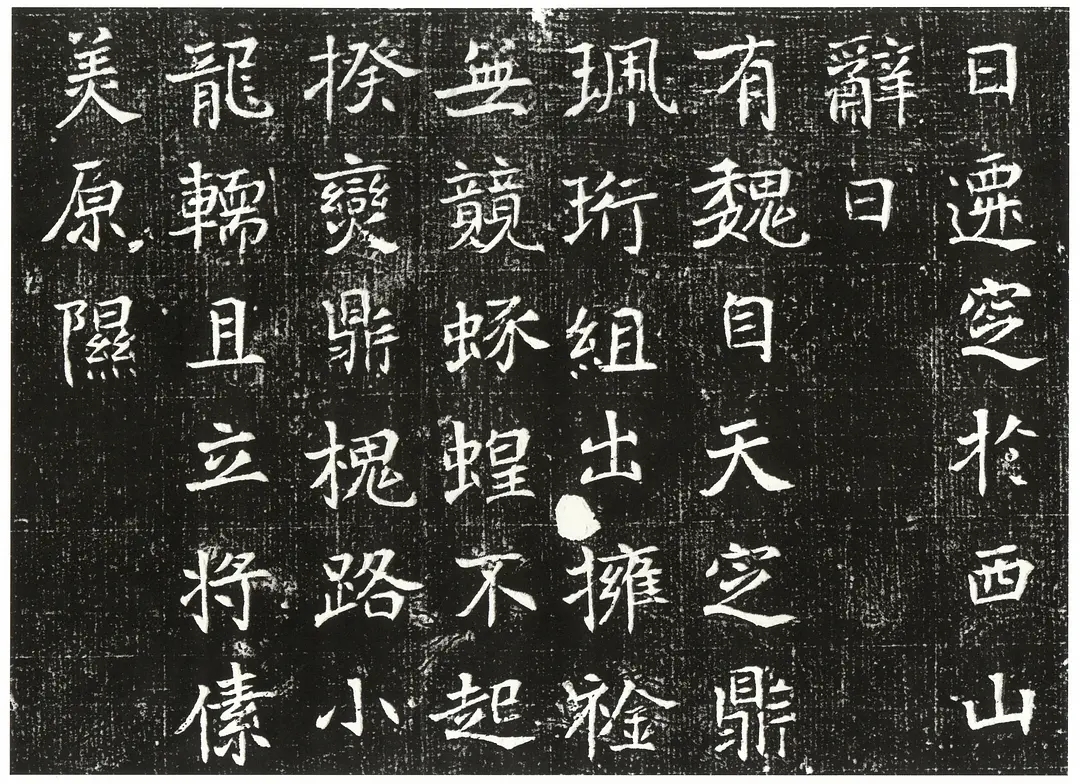 日遷窆扵西山
辭曰
有魏自天定鼎
珮珩組出擁衿
無競蝝蝗不起
揆爕鼎槐路小
龍轜且立将傃
美原隰